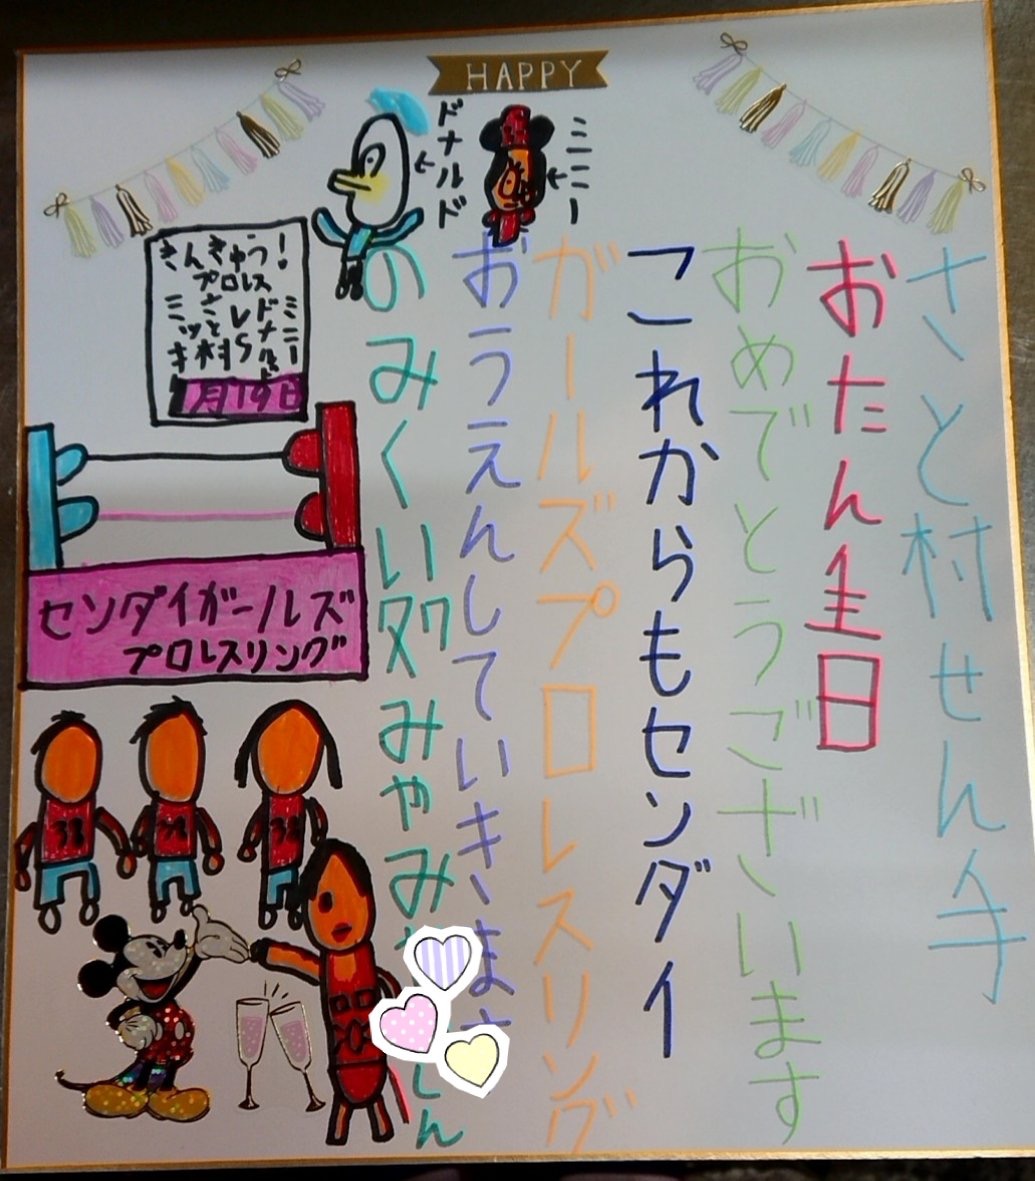 HAPPY
ミニー
ドナルド
さと村せん手
おたん生日
おめでとうございます
これからもセンダイ
ガールズプロレスリング
おうえんしていきます
のみくい処みやみ
しん
きんきゅう!
プロレス
ミニー
ドナルド
VS
さと村
ミッキー
1月19日
センダイガールズ
プロレスリング
33
33
33